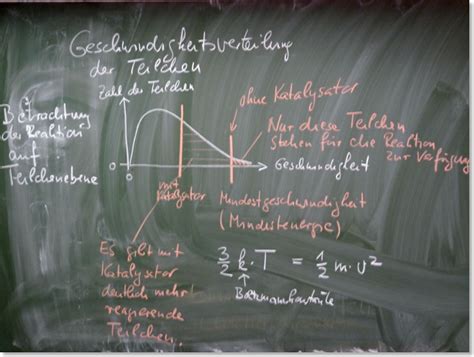 Geschwindigkeitsverteilung
der Teilchen
Zahl der Teilchen
ohne Katalysator
Betrachtung
der Reaktion
auf
Teilchenebene
Nur diese Teilchen
stehen für die Reaktion
zur Verfügung
Geschwindigkeit
0
0
mit
Katalysator
Mindestgeschwindigkeit
(Mindestenergie)
Es gibt mit
Katalysator
deutlich mehr
reagierende
Teilchen.
3/2 k · T = 1/2 m · v²
Boltzmannkonstante